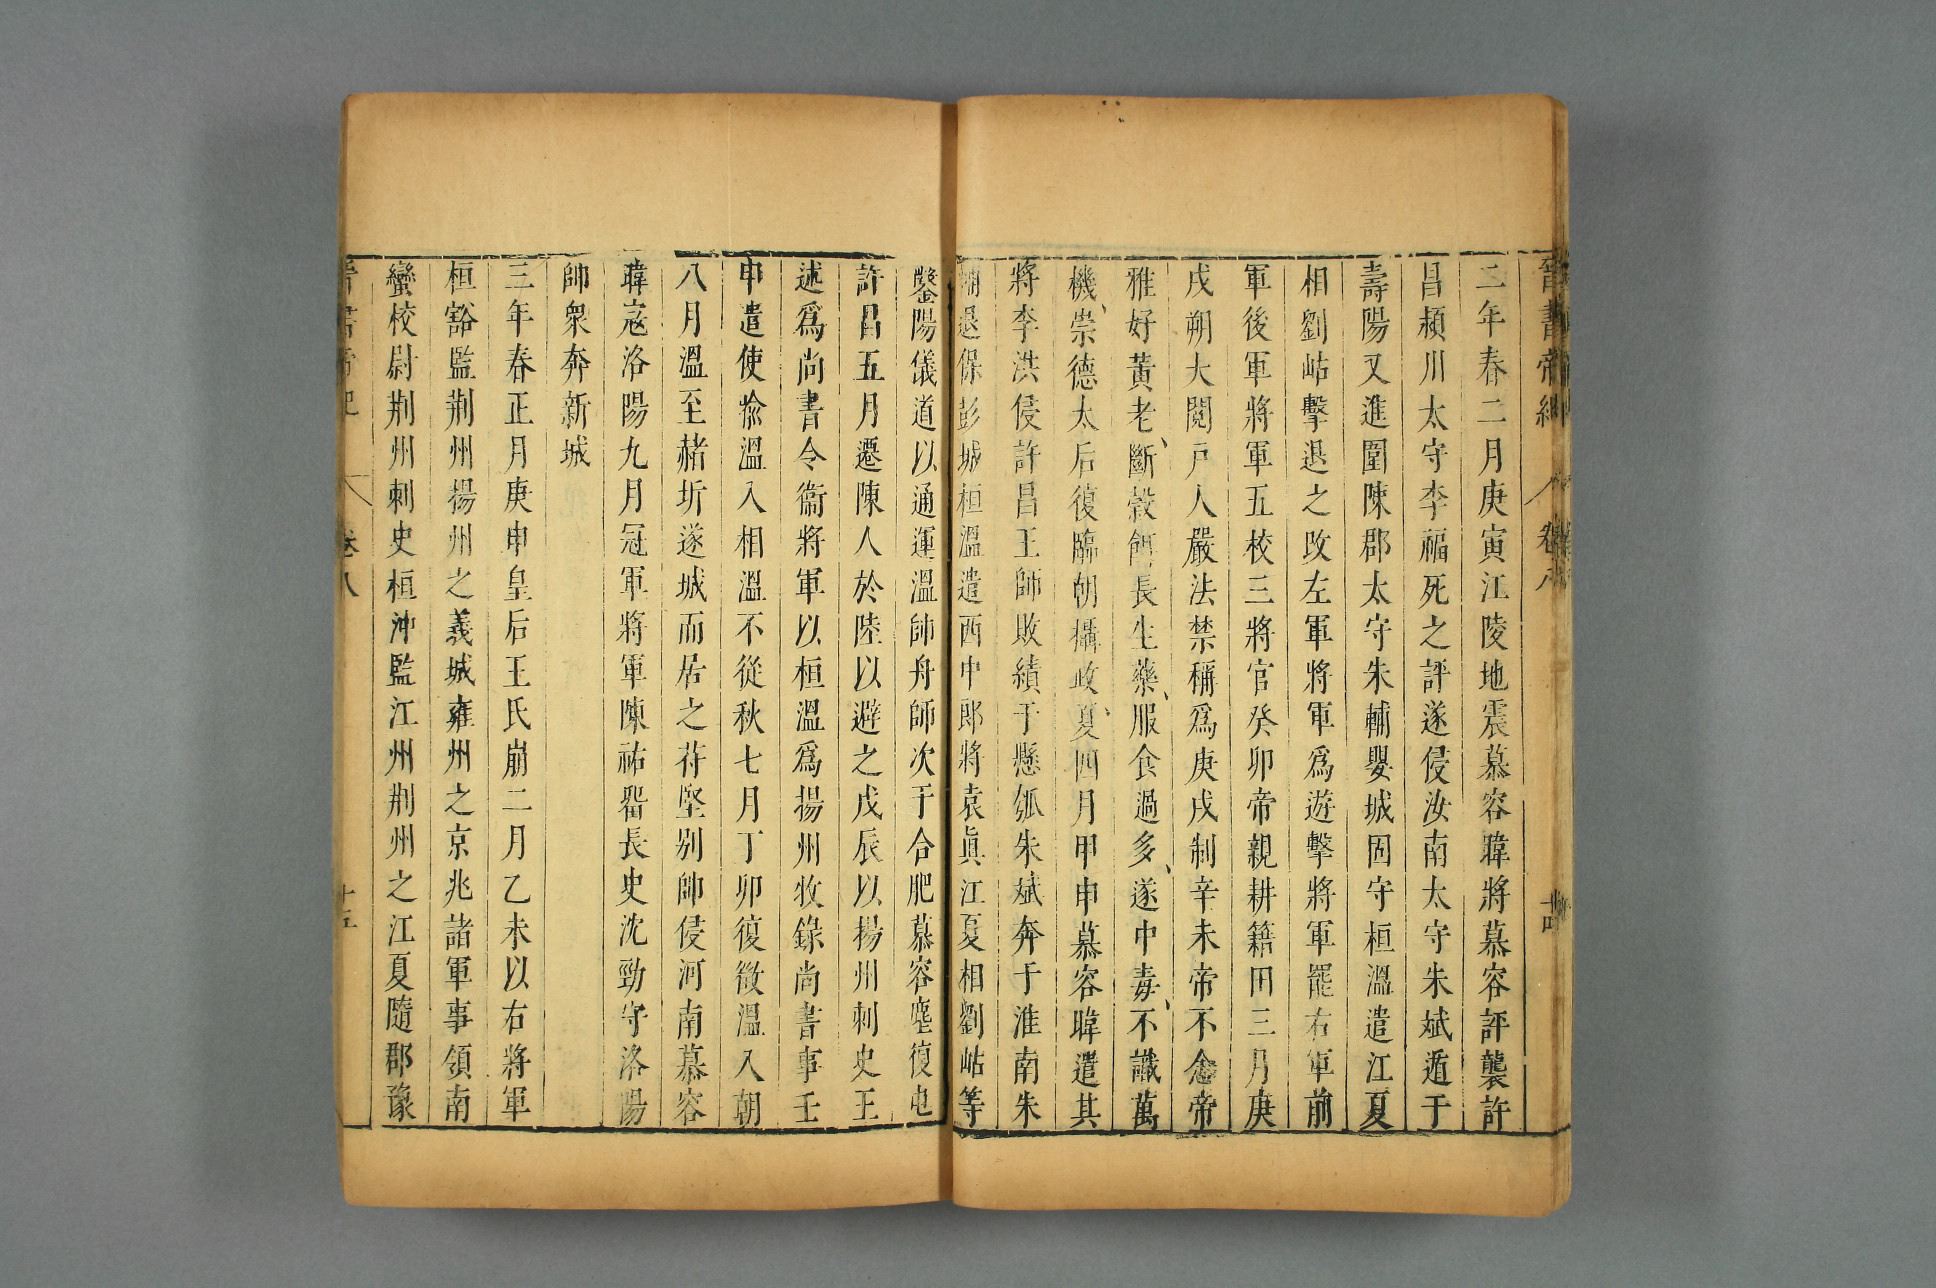 晉書帝紀 卷八 十四
二年春二月庚寅江陵地震慕容暐將慕容評襲許
昌潁川太守李福死之評遂侵汝南太守朱斌遁于
壽陽又進圍陳郡太守朱輔嬰城固守桓溫遣江夏
相劉岵擊退之改左軍將軍爲遊擊將軍罷右軍前
軍後軍將軍五校三將官癸卯帝親耕籍田三月庚
戌朔大閱戸人嚴法禁稱爲庚戌制辛未帝不悆帝
雅好黃老斷穀餌長生藥服食過多遂中毒不識萬
機崇德太后復臨朝攝政夏四月甲申慕容暐遣其
將李洪侵許昌王師敗績于懸瓠朱斌奔于淮南朱
輔退保彭城桓溫遣西中郎將袁眞江夏相劉岵等
鑿陽儀道以通運溫帥舟師次于合肥慕容塵復屯
許昌五月遷陳人於陸以避之戊辰以揚州刺史王
述爲尚書令衞將軍以桓溫爲揚州牧錄尚書事壬
申遣使喩溫入相溫不從秋七月丁卯復徵溫入朝
八月溫至赭圻遂城而居之苻堅别帥侵河南慕容
暐寇洛陽九月冠軍將軍陳祐畱長史沈勁守洛陽
帥衆奔新城
三年春正月庚申皇后王氏崩二月乙未以右將軍
桓豁監荆州揚州之義城雍州之京兆諸軍事領南
蠻校尉荆州刺史桓沖監江州荆州之江夏隨郡豫
晉書帝紀 卷八 十五